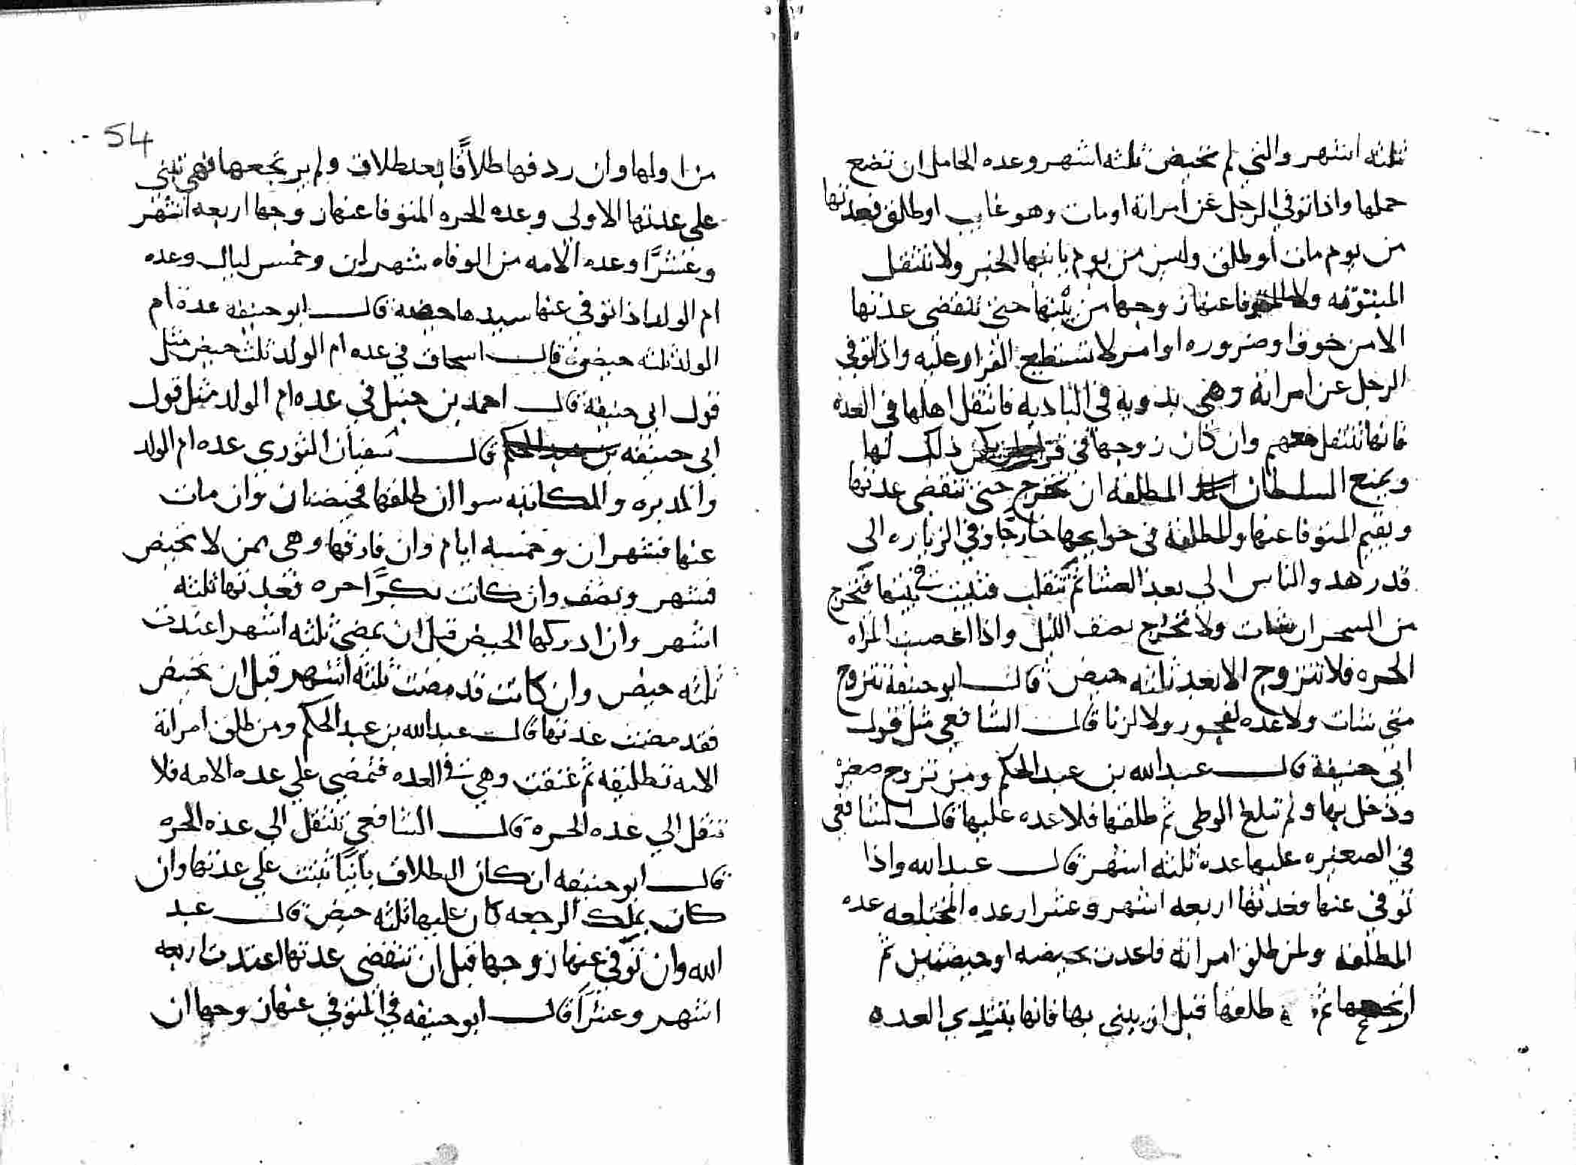 ثلثه اشهر والتي لم تحيض ثلثه اشهر وعده الحامل ان تضع
حملها واذا توفي الرجل عن امراته او مات وهو غايب او طلق فعدتها
من يوم مات او طلق وليس من يوم ياتيها الخبر ولا تنتقل
المبتوته ولا المتوفا عنها زوجها من بيتها حتى تنقضي عدتها
الا من خوف او ضروره او امر لا تستطيع القرار عليه واذا توفي
الرجل عن امراته وهي بدويه في الباديه فانتقل اهلها في العده
فانها تنتقل معهم وان كان زوجها في قرار لم يكن ذلك لها
ويمنع السلطان المطلقه ان تخرج حتى تنقضي عدتها
وتقيم المتوفا عنها والمطلقه في حوايجها خارجا وفي الزياره الى
قدر هد والناس الي بعد العشا ثم تنقلب فتبيت في بيتها فتخرج
من السحر ان شات ولا تخرج نصف الليل واذا اغصبت المراه
الحره فلا تتزوج الا بعد ثلثه حيض قال ابو حنيفة تتزوج
متى شات ولا عده لفجور ولا لزنا قال الشافعي مثل قول
ابي حنيفة قال عبد الله بن عبد الحكم ومن تزوج صغيرة
ودخل بها ولم تبلغ الوطي ثم طلقها فلا عده عليها قال الشافعي
في الصغيره عليها عده ثلثه اشهر قال عبد الله واذا
توفي عنها فعدتها اربعه اشهر وعشرا وعده المختلعه عده
المطلقة ومن طلق امراته فاعدت بحيضه او حيضتين ثم
ارتجعها ثم طلقها قبل ان يبني بها فانها تبتدي العده
54
من اولها وان ردفها طلاقا بعد طلاق ولم يرتجعها فهي تبني
على عدتها الاولى وعده الحره المتوفا عنها زوجها اربعه اشهر
وعشرًا وعده الامه من الوفاه شهرين وخمس ليال وعده
ام الولد اذا توفي عنها سيدها حيضه قال ابو حنيفه عدة ام
الولد ثلثه حيض قال اسحاق في عده ام الولد ثلث حيض مثل
قول ابي حنيفة قال احمد بن حنبل في عده ام الولد مثل قول
ابي حنيفه قال سفيان الثوري عده ام الولد
والمدبره والمكاتبه سوا ان طلقها فحيضتان وان مات
عنها فشهران وخمسه ايام وان فارقها وهي بمن لا تحيض
فشهر ونصف وان كانت بكرًا حره فعدتها ثلثه
اشهر وان ادركها الحيض قبل ان تمضي ثلثه اشهر اعتدت
ثلثه حيض وان كانت قد مضت ثلثة اشهر قبل ان تحيض
فقد مضت عدتها قال عبد الله بن عبد الحكم ومن طلق امراته
الامه تطليقه ثم عتقت وهي في العده فتمضي علي عده الامه فلا
تنقل الي عده الحره قال الشافعي تنتقل الي عده الحره
قال ابو حنيفه ان كان الطلاق باينًا تبنت علي عدتها وان
كان يملك الرجعه كان عليها ثلثه حيض قال عبد
الله وان توفي عنها زوجها قبل ان تنقضي عدتها اعتدت اربعه
اشهر وعشرًا قال ابو حنيفه في المتوفي عنها زوجها ان